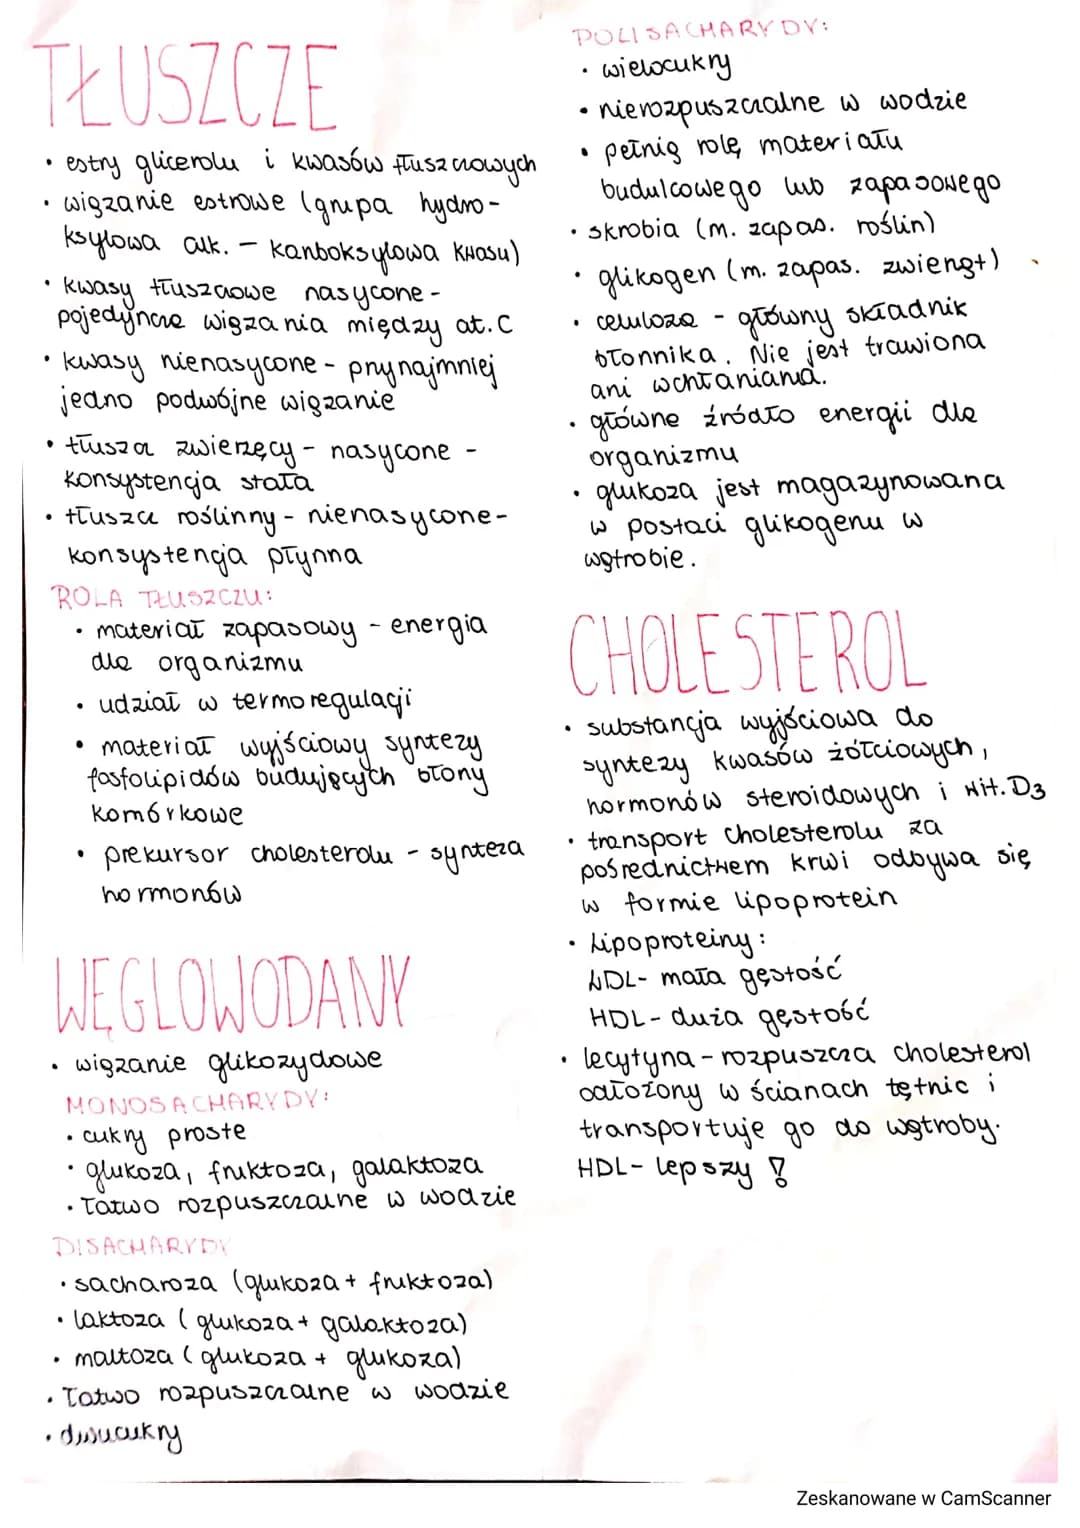 TŁUSZCZE
• estry glicerolu i kwasów tłuszczowych
• wiązanie estrowe (grupa hydro-
ksylowa alk. – karboksylowa kwasu)
• kwasy tłuszczowe nasycone -
pojedyncze wiązania między at. C
• kwasy nienasycone - przynajmniej
jedno podwójne wiązanie
• tłuszcz zwierzęcy - nasycone -
konsystencja stała
• tłuszcz roślinny - nienasycone -
konsystencja płynna
ROLA TŁUSZCZU:
• materiał zapasowy - energia
dla organizmu
• udział w termoregulacji
• materiał wyjściowy syntezy
fosfolipidów budujących błony
komórkowe
• prekursor cholesterolu - synteza
hormonów
WĘGLOWODANY
• wiązanie glikozydowe
MONOSACHARYDY:
• cukry proste
• glukoza, fruktoza, galaktoza
• łatwo rozpuszczalne w wodzie
DISACHARYDY
• sacharoza (glukoza + fruktoza)
• laktoza (glukoza + galaktoza)
• maltoza (glukoza + glukoza)
• łatwo rozpuszczalne w wodzie
• dwucukry
POLISACHARYDY:
• wielocukry
• nierozpuszczalne w wodzie
• pełnią rolę materiału
budulcowego lub zapasowego
• skrobia (m. zapas. roślin)
• glikogen (m. zapas. zwierząt)
• celuloza - główny składnik
błonnika. Nie jest trawiona
ani wchłaniana.
• główne źródło energii dla
organizmu
• glukoza jest magazynowana
w postaci glikogenu w
wątrobie.
CHOLESTEROL
• substancja wyjściowa do
syntezy kwasów żółciowych,
hormonów steroidowych i wit. D3
• transport cholesterolu za
pośrednictwem krwi odbywa się
w formie lipoprotein
• Lipoproteiny:
LDL - mała gęstość
HDL - duża gęstość
• lecytyna - rozpuszcza cholesterol
odłożony w ścianach tętnic i
transportuje go do wątroby.
HDL - lepszy !
Zeskanowane w CamScanner